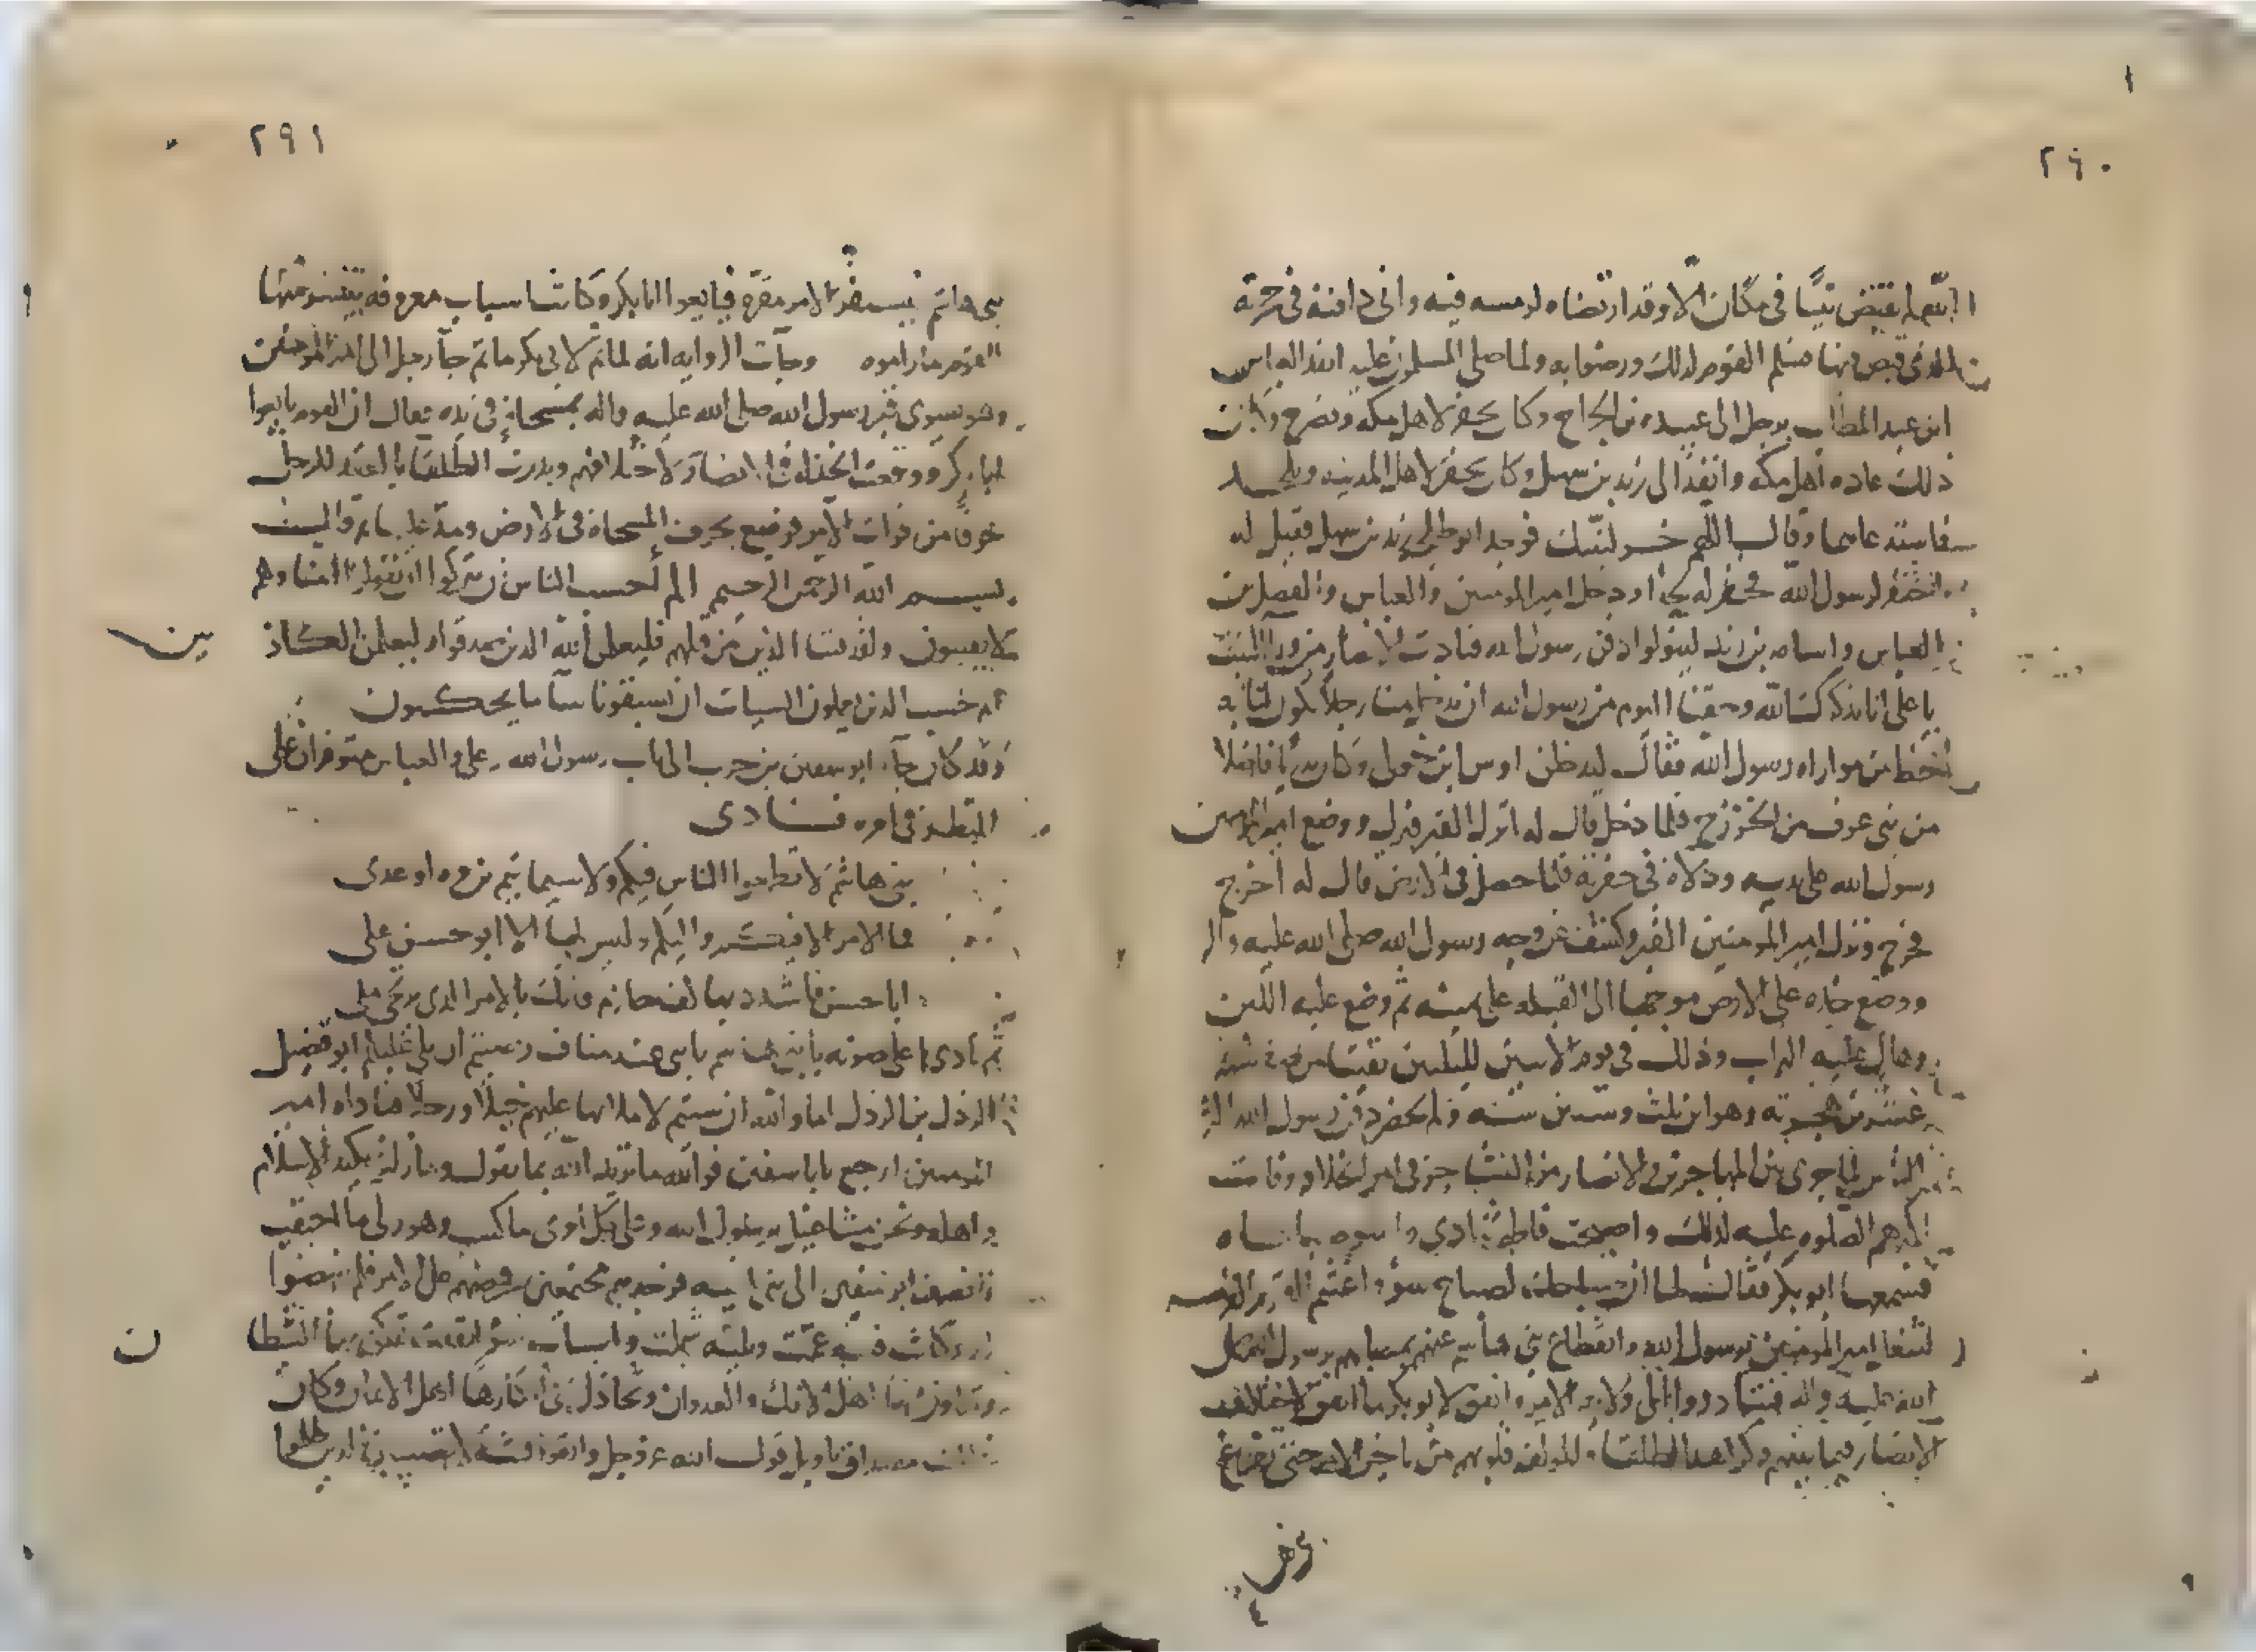 ٢٩٠
الله لم يقبض نبيا في مكان الا وقد ارتضاه لرمسه فيه واني دافنه في حجرته
التي قبض فيها فسلم القوم لذلك ورضوا به ولما صلى المسلمون عليه انفذ العباس
ابن عبد المطلب برجل الى عبيده بن الجراح وكان يحفر لاهل مكه ويضرح وكان
ذلك عاده اهل مكه وانفذ الى زيد بن سهل وكان يحفر لاهل المدينه ويلحد
فاستدعاهما وقال اللهم خر لنبيك فوجد ابو طلحه زيد بن سهل فقيل له
احفر لرسول الله فحفر له لحدا ودخل امير المومنين والعباس والفضل بن
العباس واسامه بن زيد ليتولوا دفن رسول الله فنادت الانصار من ورا البيت
يا علي انا نذكرك الله وحقنا اليوم من رسول الله ان يذهب ادخل منا رجلا يكون لنا به
حظ من مواراه رسول الله فقال ليدخل اوس ابن خولى وكان بدريا فاضلا
من بني عوف من الخزرج فلما دخل قال له انزل القبر فنزل ووضع امير المومنين
رسول الله على يديه ودلاه في حفرته فلما حصل في الارض قال له اخرج
فخرج ونزل امير المومنين القبر وكشف عن وجه رسول الله صلى الله عليه واله
ووضع خده على الارض موجها الى القبله على يمينه ثم وضع عليه اللبن
وهال عليه التراب وذلك في يوم الاسين لليلتين بقيتا من صفر سنه
عشر من هجرته وهو ابن ثلث وستين سنه ولم يحضر دفن رسول الله اكثر
الناس لما جرى بين المهاجرين والانصار من التشاجر في امر الخلافه وفات
اكثرهم الصلوه عليه لذلك واصبحت فاطمه تنادي واسوء صباحاه
فسمعها ابو بكر فقال لها ان صباحك لصباح سوء واغتنم القوم الفرصه
لشغل امير المومنين برسول الله وانقطاع بني هاشم عنهم بمصابهم برسول الله صلى
الله عليه واله فتبادروا الى ولايه الامر واتفق لابو بكر ما اتفق لاختلاف
الانصار فيما بينهم وكراهه الطلقاء والمولفه قلوبهم من تاخر الامر حتى يفرغ
٢٩١
بنى هاشم فيستقر الامر مقره فبايعوا ابا بكر وكانت اسباب معروفه تيسر منها
القوم ما راموه وجآت الروايه انه لما تم لابى بكر ما تم جآ رجل الى امير المومنين
وهو يسوى قبر رسول الله صلى الله عليه واله بمسحاة في يده فقال ان القوم بايعوا
ابا بكر ووقعت الخذله في الانصار لاختلافهم وبدرت الطلقا بالعقد للرجل
خوفا من فوات الامر فوضع بحرف المسحاة في الارض ويده عليها ثم قال
بسم الله الرحمن الرحيم الم احسب الناس ان يتركوا ان يقولوا امنا وهم
لا يفتنون ولقد فتنا الذين من قبلهم فليعلمن الله الذين صدقوا وليعلمن الكاذ
بين
ام حسب الذين يعملون السيات ان يسبقونا سآ ما يحكمون
وقد كان جآ ابو سفين بن حرب الى باب رسول الله وعلى والعباس متوفران على
النظر في امره فنادى
بنى هاشم لا تطمعوا الناس فيكم ولا سيما تيم بن مره او عدى
فما الامر الا فيكم واليكم وليس لها الا ابو حسن على
ابا حسن فاشدد بها كف حازم فانك بالامر الذي يرتجى ملى
ثم نادى باعلى صوته يا بنى هاشم يا بنى عبد مناف رضيتم ان يلي عليكم ابو فصيل
الرذل بن الرذل اما والله ان شيتم لاملانها عليهم خيلا ورجلا فناداه امير
المومنين ارجع يا با سفين فوالله ما تريد الله بما تقول وما زلت تكيد الاسلام
واهله ونحن مشاغيل برسول الله وعلى كل امرى ما كسب وهو ولى ما احتقب
فانصرف ابو سفين الى بنى اميه فوجدهم مجتمعين فحرضهم على الامر فلم ينهضوا
له وكانت فتنه عمت وبليه شملت واسباب سوء اتفقت تمكن بها الشيطا
ن
وتعاون بها اهل الافك والعدوان وتخاذل في انكارها اهل الايمان وكان
ذلك مصداق تاويل قول الله عز وجل واتقوا فتنه لا تصيبن الذين ظلموا